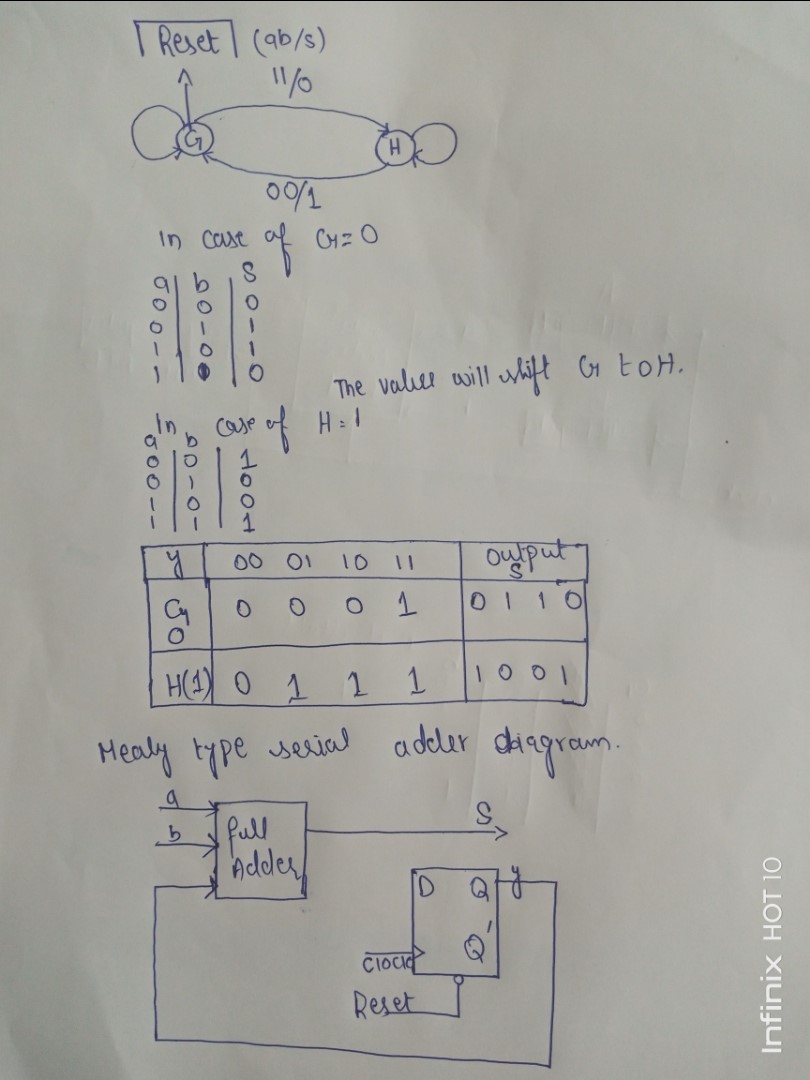 Reset (ab/s)
11/0
G H
00/1
In case of G=0
a b S
0 0 0
0 1 1
1 0 1
1 0
The value will shift G to H.
In case of H=1
a b
0 0 1
0 1 0
1 0 0
1 1 1
y 00 01 10 11 output S
G 0 0 0 0 1 0 1 1 0
H(1) 0 1 1 1 1 0 0 1
Mealy type serial adder diagram.
a
b
full Adder
S
D Q y
Q'
Clock
Reset
Infinix HOT 10